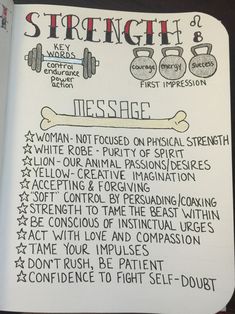 STRENGTH ♌ 8
KEY WORDS
control
endurance
power
action
courage
energy
success
FIRST IMPRESSION
MESSAGE
☆WOMAN - NOT FOCUSED ON PHYSICAL STRENGTH
☆WHITE ROBE - PURITY OF SPIRIT
☆LION - OUR ANIMAL PASSIONS/DESIRES
☆YELLOW - CREATIVE IMAGINATION
☆ACCEPTING & FORGIVING
☆"SOFT" CONTROL BY PERSUADING/COAXING
☆STRENGTH TO TAME THE BEAST WITHIN
☆BE CONSCIOUS OF INSTINCTUAL URGES
☆ACT WITH LOVE AND COMPASSION
☆TAME YOUR IMPULSES
☆DON'T RUSH, BE PATIENT
☆CONFIDENCE TO FIGHT SELF-DOUBT